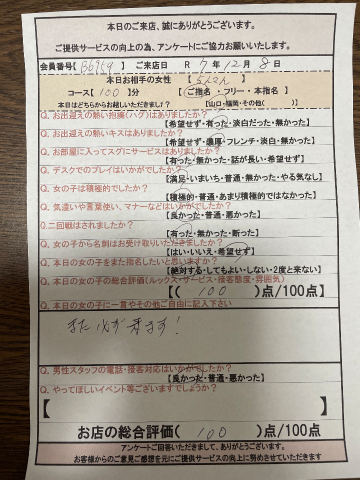 本日のご来店、誠にありがとうございます。
ご提供サービスの向上の為、アンケートにご協力お願いいたします。
会員番号【 】 ご来店日 R 7年 12月 8日
本日お相手の女性【 】
コース【 100 】分 【ご指名・フリー・本指名】
本日はどちらからお越しいただきましたか？ 【山口・福岡・その他( )】
Q. お出迎えの熱い抱擁(ハグ)はありましたか？
【希望せず・有った・淡白だった・無かった】
Q. お出迎えの熱いキスはありましたか？
【希望せず・濃厚・フレンチ・淡白・無かった】
Q. お部屋に入ってスグにサービスはありましたか？
【有った・無かった・話が長い・希望せず】
Q. デスクでのプレイはいかがでしたか？
【満足・いまいち・普通・無かった・やる気なし】
Q. 女の子は積極的でしたか？
【積極的・普通・あまり積極的ではなかった】
Q. 気遣いや言葉使い、マナーなどはいかがでしたか？
【良かった・普通・悪かった】
Q. 二回戦はされましたか？
【有った・無かった・断った】
Q. 女の子から名刺はお受け取りいただきましたか？
【はい・いいえ・希望せず】
Q. 本日の女の子をまた指名したいと思いますか？
【絶対する・してもよい・しない・2度と来ない】
Q. 本日の女の子の総合評価(ルックス・サービス・接客態度・雰囲気)
( 100 )点/100点】
Q. 本日の女の子に一言やその他ご自由に記入下さい
また必ず来ます！
Q. 男性スタッフの電話・接客対応はいかがでしたか？
【良かった・普通・悪かった】
Q. やってほしいイベント等ございますでしょうか？
【 】
お店の総合評価( 100 )点/100点
アンケートご回答いただきまして、ありがとうございます。
お客様からのご意見ご感想を元にご提供サービスの向上に努めさせていただきます